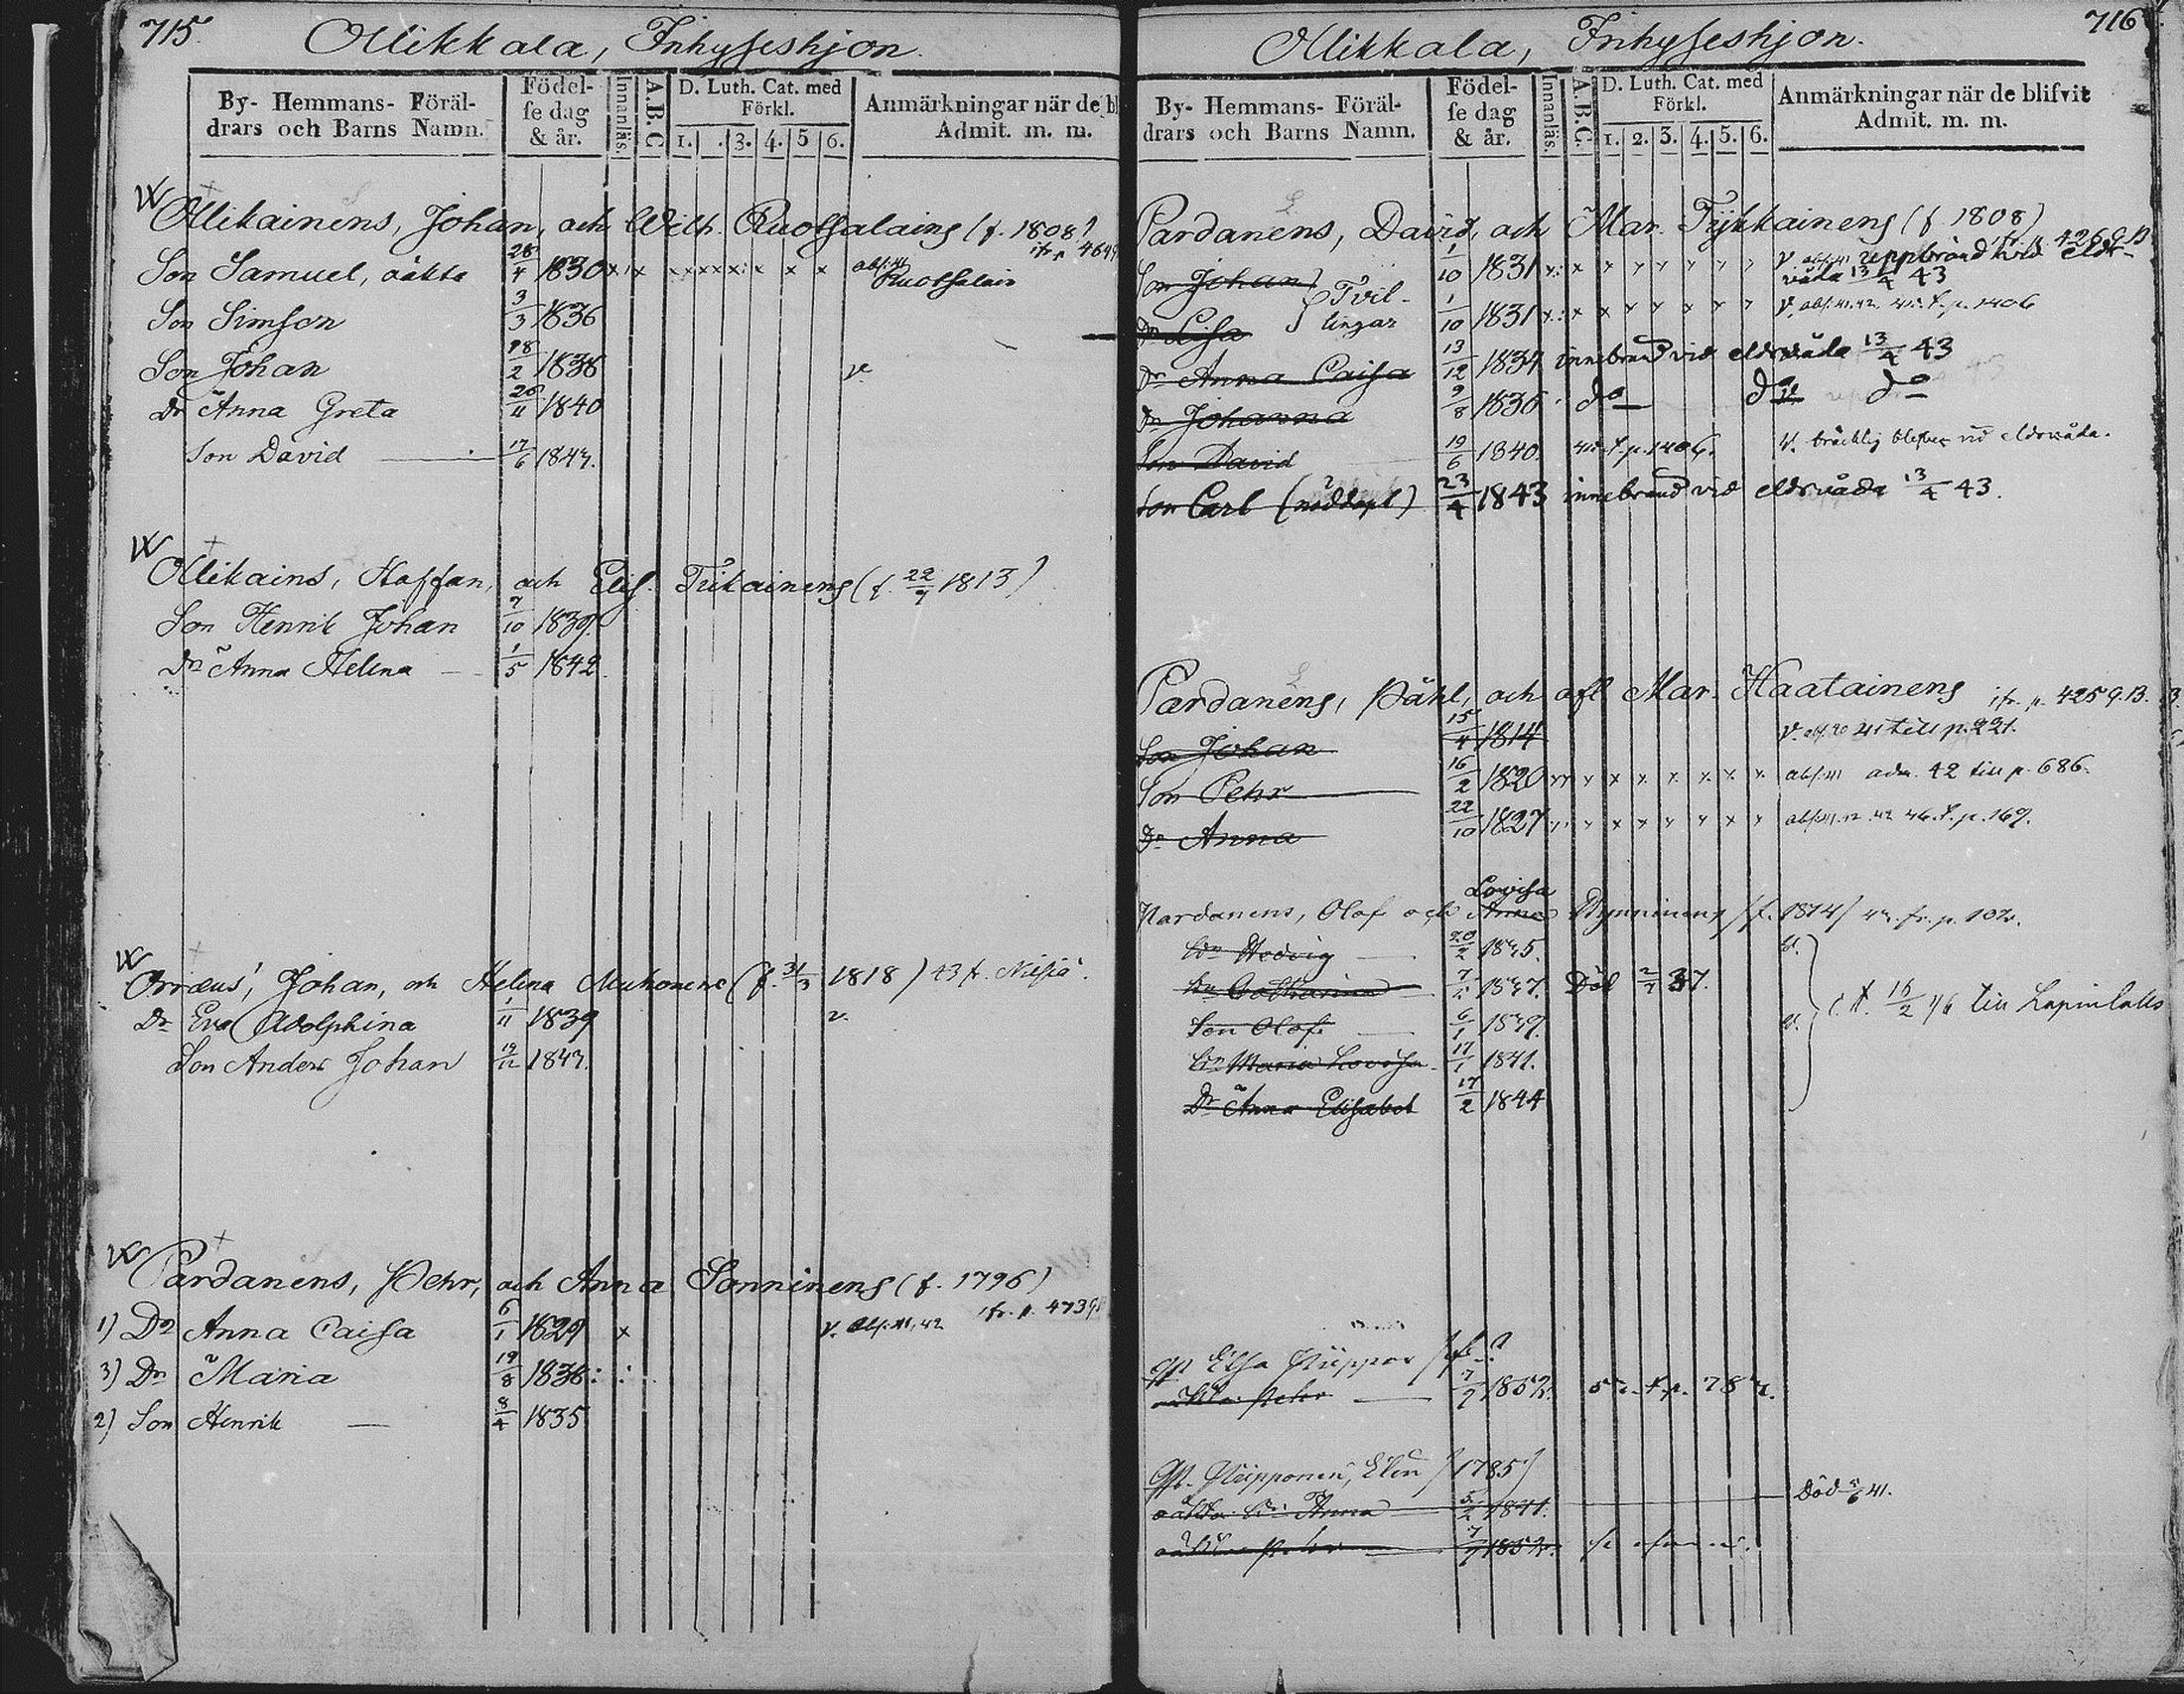 715.
Ollikkala, Inhyseshjon.
By- Hemmans- Föräl-
drars och Barns Namn.
Födel-
se dag
& år.
Innanläs.
A.B.C
D. Luth. Cat. med
Förkl.
1. . 3. 4. 5 6.
Anmärkningar när de bl
Admit. m. m.
Ollikainens, Johan, och Wilh. Ruotsalains (f. 1808)
Son Samuel, oäkta 28/4 1830 Ruotsalain
Son Simson 3/3 1836
Son Johan 18/2 1838 v.
Dr Anna Greta 26/11 1840
Son David 17/6 1843.
Ollikains, Staffan, och Elis. Tiikainens (f. 22/7 1813)
Son Henrik Johan 7/10 1839.
Dr Anna Helena 1/5 1842.
Orræus, Johan, och Helena Muhonens (f. 31/3 1818) 43 fr. Nilsiä.
Dr Eva Adolphina 1/11 1839 v.
Son Anders Johan 19/12 1843.
Pardanens, Pehr, och Anna Sonninens (f. 1796)
ifr. p. 473
1) Dr Anna Caisa 6/1 1829 x v. abs. 41, 42
3) Dr Maria 19/8 1836
2) Son Henrik 8/4 1835
716.
Ollikkala, Inhyseshjon.
By- Hemmans- Föräl-
drars och Barns Namn.
Födel-
se dag
& år.
Innanläs.
A.B.C.
D. Luth. Cat. med
Förkl.
1. 2. 3. 4. 5. 6.
Anmärkningar när de blifvit
Admit. m. m.
Pardanens, David, och Mar. Tykkainens (f 1808)
Son Johan 1/10 1831 v. abs. 41 uppbränd vid elds-
våda 13/4 43
Tvil-
lingar
Dr Lisa 1/10 1831 v. abs. 41. 42. t. p. 1406
Dr Anna Caisa 13/12 1834 innebränd vid eldsvåda 13/4 43
Dr Johanna 9/8 1836 do do do
Son David 19/6 1840. t. p. 1406. v. bräcklig blefven vid eldsvåda.
Son Carl (nöddöpt) 23/4 1843 innebränd vid eldsvåda 13/4 43.
Pardanens, Påhl, och afl Mar. Haatainens ifr. p. 425 g. B.
Son Johan 15/4 1814 41 till p. 221.
Son Pehr 16/2 1820 abs. 41 adm. 42 till p. 686.
Dr Anna 22/10 1827 abs. 41. 42 46. t. p. 169.
Lovisa
Pardanens, Olof och Anna (f. 1814) fr. p. 102.
Dr Hedvig 20/2 1835. v.
Dr Catharina 1837. Död 2/7 37.
Son Olof 6/1 1839. v.
16/2 46 till Lapinlaks
Dr Maria Lovisa 17/1 1841.
Dr Anna Elisabet 17/2 1844
Elsa
Pehr 7/7 1852. t. p.
Elin (1785)
oäkta Dr Anna 5/2 1841. Död 41.
Pehr 7/7 1852.